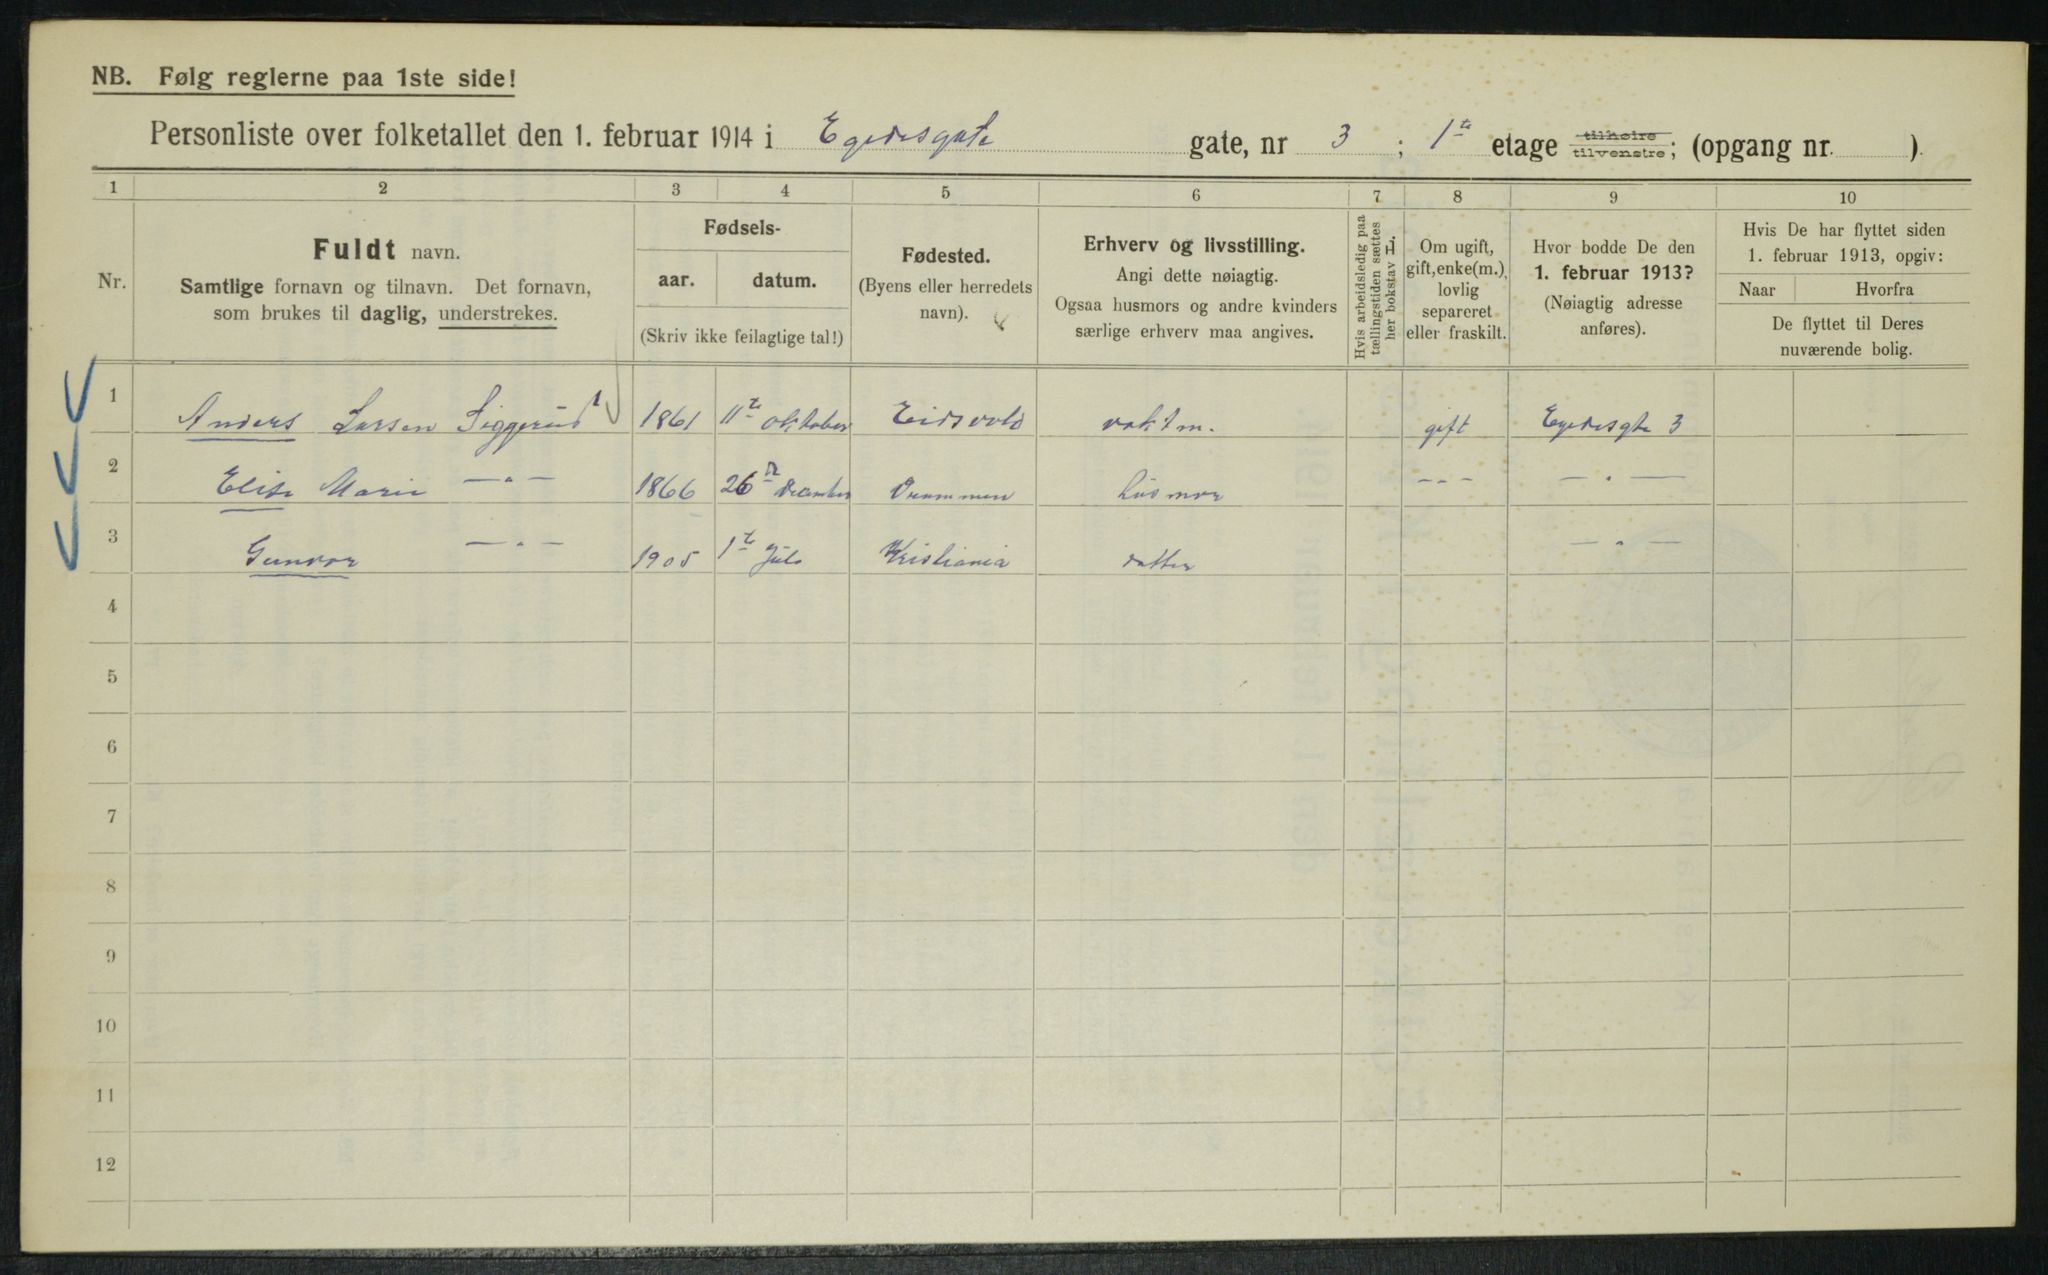 NB. Følg reglerne paa 1ste side!
Personliste over folketallet den 1. februar 1914 i Egedesgate gate, nr 3 ; 1te etage tilhøire tilvenstre; (opgang nr. ).
1 2 3 4 5 6 7 8 9 10
Nr.
Fuldt navn.
Samtlige fornavn og tilnavn. Det fornavn,
som brukes til daglig, understrekes.
Fødsels-
aar. datum.
(Skriv ikke feilagtige tal!)
Fødested.
(Byens eller herredets
navn).
Erhverv og livsstilling.
Angi dette nøiagtig.
Ogsaa husmors og andre kvinders
særlige erhverv maa angives.
Hvis arbeidsledig paa
tællingstiden sættes
her bokstav L.
Om ugift,
gift, enke(m.),
lovlig
separeret
eller fraskilt.
Hvor bodde De den
1. februar 1913?
(Nøiagtig adresse
anføres).
Hvis De har flyttet siden
1. februar 1913, opgiv:
Naar Hvorfra
De flyttet til Deres
nuværende bolig.
1 Anders Larsen Siggerud 1861 11te oktober Eidsvold vaktm. gift Egedesgte 3
2 Elise Marie —"— 1866 26 december Drammen husmor --- —"—
3 Gunvor —"— 1905 1te Juli Kristiania datter —"—
4
5
6
7
8
9
10
11
12